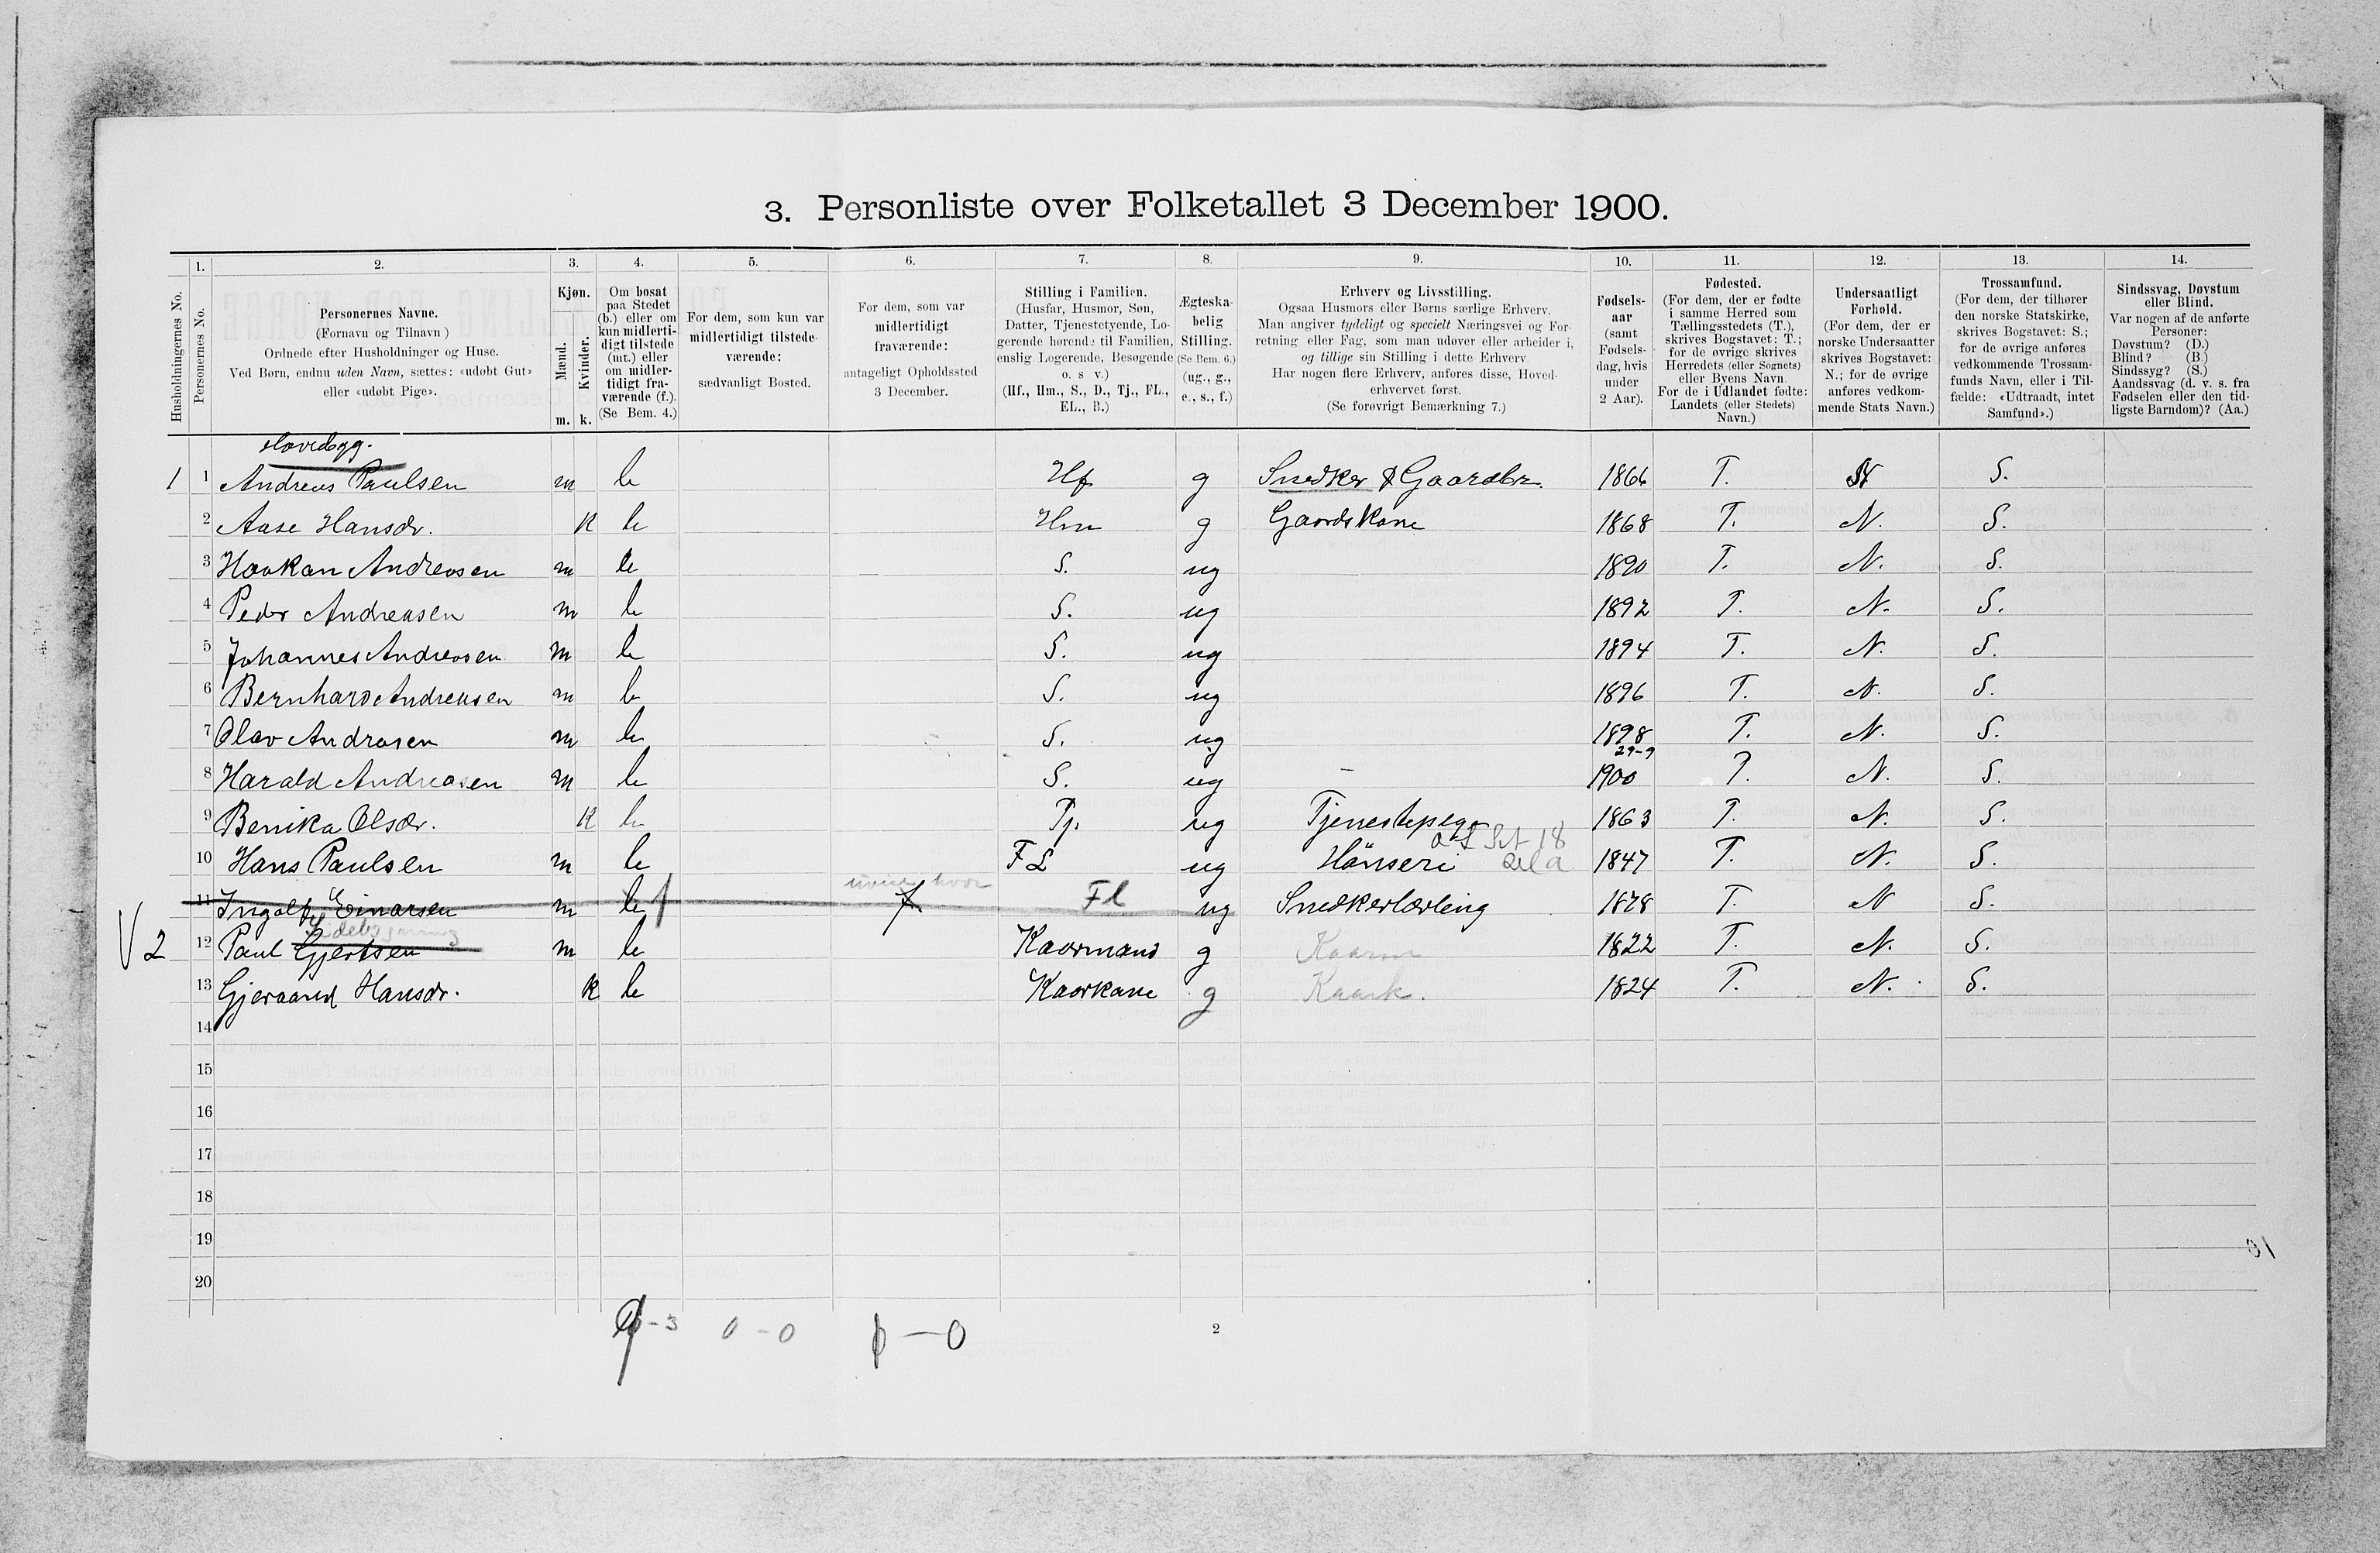 3. Personliste over Folketallet 3 December 1900.
1. 2. 3. 4. 5. 6. 7. 8. 9. 10. 11. 12. 13. 14.
Husholdningernes No.
Personernes No.
Personernes Navne.
(Fornavn og Tilnavn)
Ordnede efter Husholdninger og Huse.
Ved Børn, endnu uden Navn, sættes: «udøbt Gut»
eller «udøbt Pige».
Kjøn.
Mænd.
Kvinder.
m. k.
Om bosat
paa Stedet
(b.) eller om
kun midlerti-
digt tilstede
(mt.) eller
om midler-
tidigt fra-
værende (f.).
(Se Bem. 4.)
For dem, som kun var
midlertidigt tilstede-
værende:
sædvanligt Bosted.
For dem, som var
midlertidigt
fraværende:
antageligt Opholdssted
3 December.
Stilling i Familien.
(Husfar, Husmor, Søn,
Datter, Tjenestetyende, Lo-
gerende hørende til Familien,
enslig Logerende, Besøgende
o. s v.)
(Hf., Hm., S., D., Tj., FL.,
EL., B.)
Ægteska-
belig
Stilling.
(Se Bem. 6.)
(ug., g.,
e., s., f.)
Erhverv og Livsstilling.
Ogsaa Husmors eller Børns særlige Erhverv.
Man angiver tydeligt og specielt Næringsvei og For-
retning eller Fag, som man udøver eller arbeider i,
og tillige sin Stilling i dette Erhverv.
Har nogen flere Erhverv, anføres disse, Hoved-
erhvervet først.
(Se forøvrigt Bemærkning 7.)
Fødsels-
aar
(samt
Fødsels-
dag, hvis
under
2 Aar).
Fødested.
(For dem, der er fødte
i samme Herred som
Tællingsstedets (T.),
skrives Bogstavet: T.;
for de øvrige skrives
Herredets (eller Sognets)
eller Byens Navn.
For de i Udlandet fødte:
Landets (eller Stedets)
Navn.)
Undersaatligt
Forhold.
(For dem, der er
norske Undersaatter
skrives Bogstavet:
N.; for de øvrige
anføres vedkom-
mende Stats Navn.)
Trossamfund.
(For dem, der tilhører
den norske Statskirke,
skrives Bogstavet: S.;
for de øvrige anføres
vedkommende Trossam-
funds Navn, eller i Til-
fælde: «Udtraadt, intet
Samfund».)
Sindssvag, Døvstum
eller Blind.
Var nogen af de anførte
Personer:
Døvstum? (D.)
Blind? (B.)
Sindssyg? (S.)
Aandssvag (d. v. s. fra
Fødselen eller den tid-
ligste Barndom)? (Aa.)
Hovedbygg.
1 1 Andreas Paulsen m b Hf g Snedker & Gaardbr. 1866 T. N S.
2 Aase Hansdr. k b Hm g Gaardskone 1868 T. N. S.
3 Haakan Andreasen m b S. ug 1890 T. N. S.
4 Peder Andreasen m b S. ug 1892 T. N. S.
5 Johannes Andreasen m b S. ug 1894 T. N. S.
6 Bernhard Andreasen m b S. ug 1896 T. N. S.
7 Olav Andrasen m b S. ug 1898 T. N. S.
29-9
8 Harald Andreasen m b S. ug 1900 T. N. S.
9 Benika Olsdr. k b Tj. ug Tjenestepige 1863 T. N. S.
10 Hans Paulsen m b FL ug Hönseri 1847 T. N. S.
uvist hvor
11 Ingolf Einarsen m b f Fl ug Snedkerlærling 1878 T. N S.
Sidebygning
V 2 12 Paul Gjertsen m b Kaarmand g Kaarm 1822 T. N. S.
13 Gjeraand Hansdr. k b Kaarkone g Kaark. 1824 T. N. S.
14
15
16
17
18
19
20
9-3 0-0 0-0
2